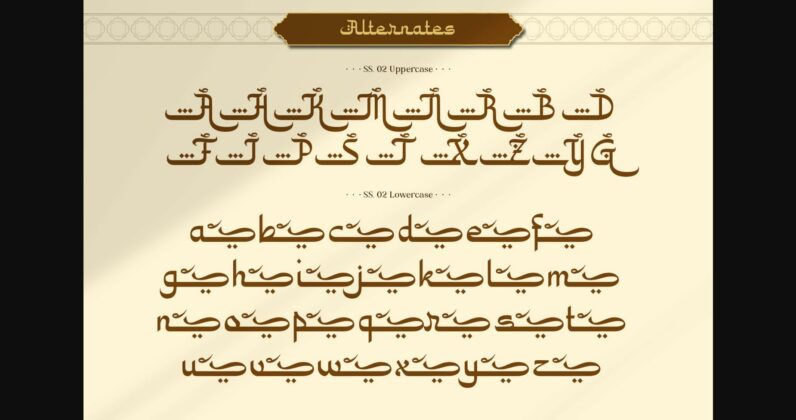 Alternates
· · · SS. 02 Uppercase · · ·
A H K M N R B D
F J P S T X Z Y G
· · · SS. 02 Lowercase · · ·
a b c d e f
g h i j k l m
n o p q r s t
u v w x y z